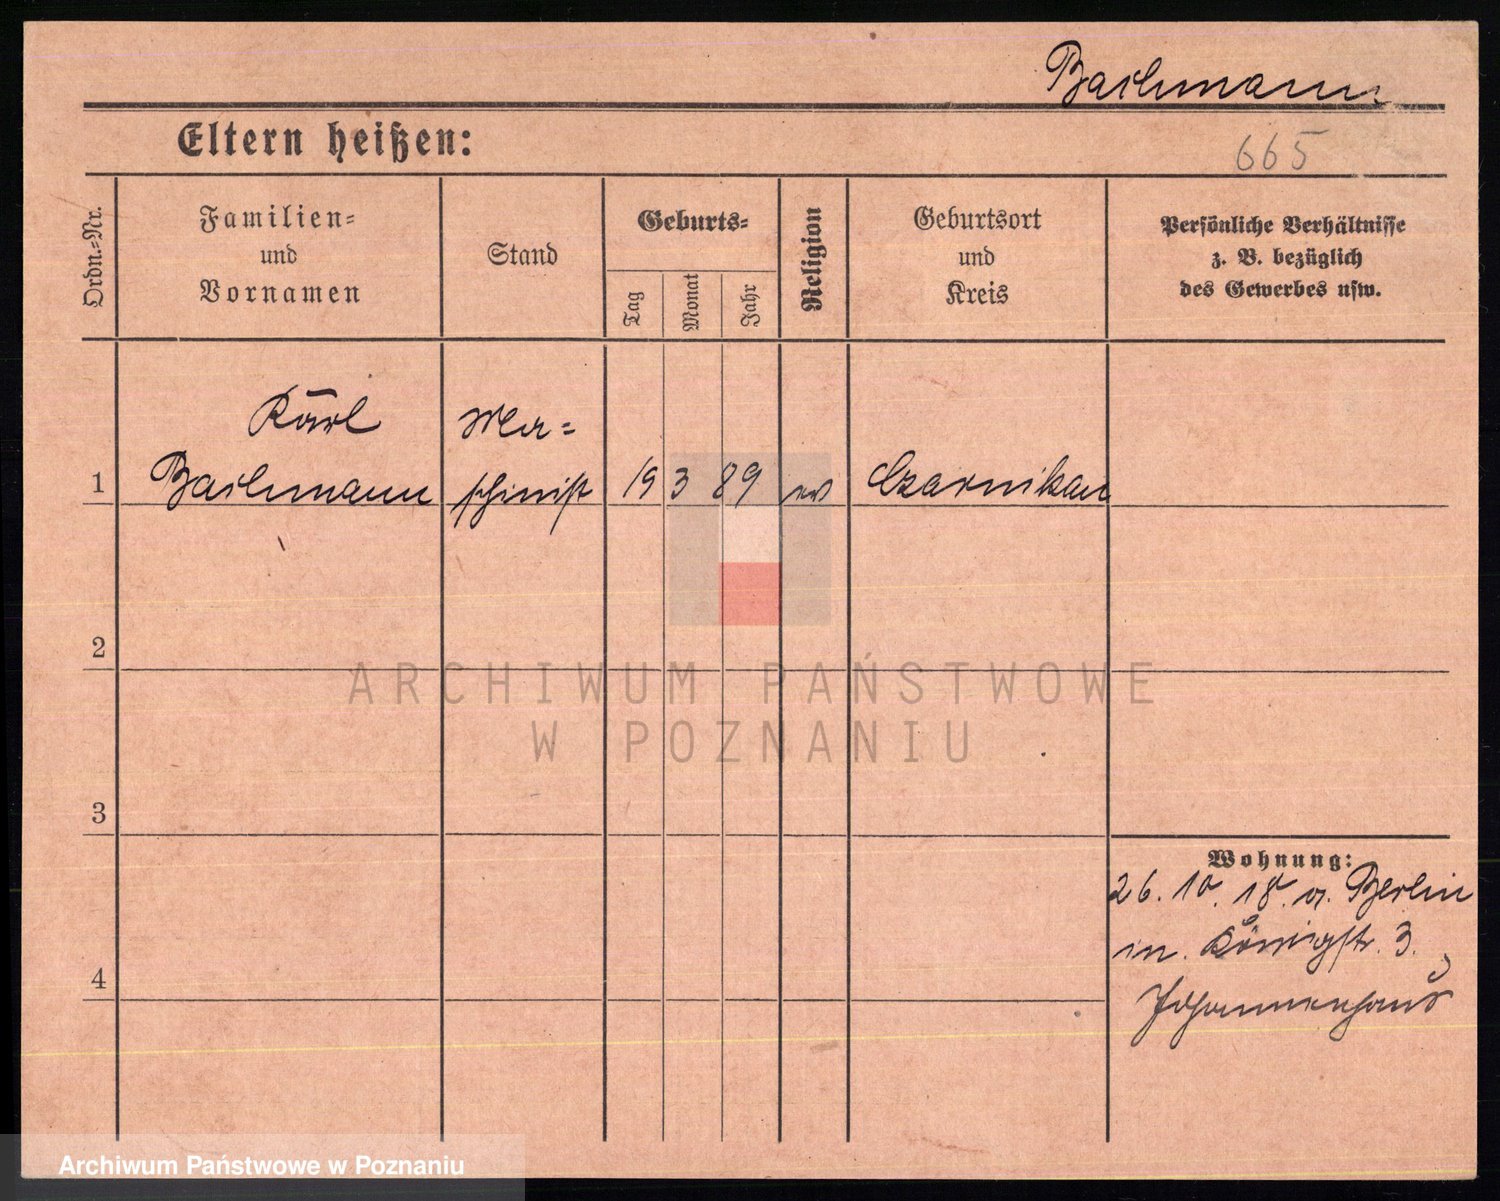 Bachmann
Eltern heißen:
665
Ordn.-Nr.
Familien-
und
Vornamen
Stand
Geburts-
Tag
Monat
Jahr
Religion
Geburtsort
und
Kreis
Persönliche Verhältnisse
z. B. bezüglich
des Gewerbes usw.
Karl
Bachmann
Ma-
schinist
1
19 3 89
ev
Czarnikau
2
3
4
Wohnung:
26. 10. 18. a. Berlin
in. Königstr. 3.
Johannenhaus
ARCHIWUM PAŃSTWOWE
W POZNANIU
Archiwum Państwowe w Poznaniu